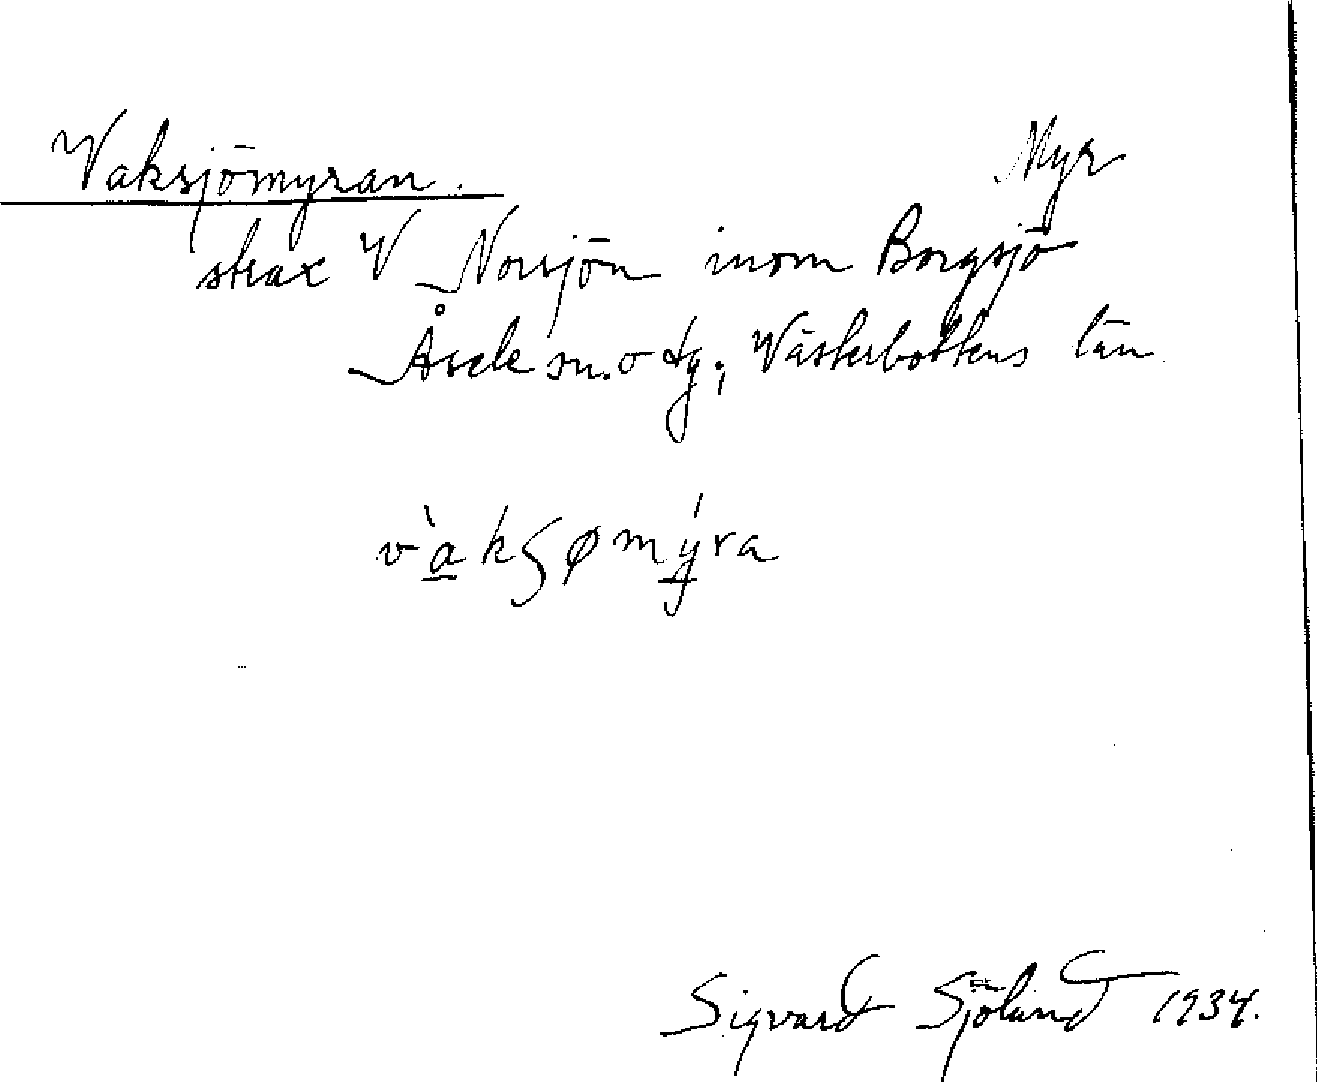 Vaksjömyran. Myr
strax V Norsjön inom Borgsjö
Åsele sn. o tg; Västerbottens län
vàkʂømýra
Sigvard Sjölund 1934.